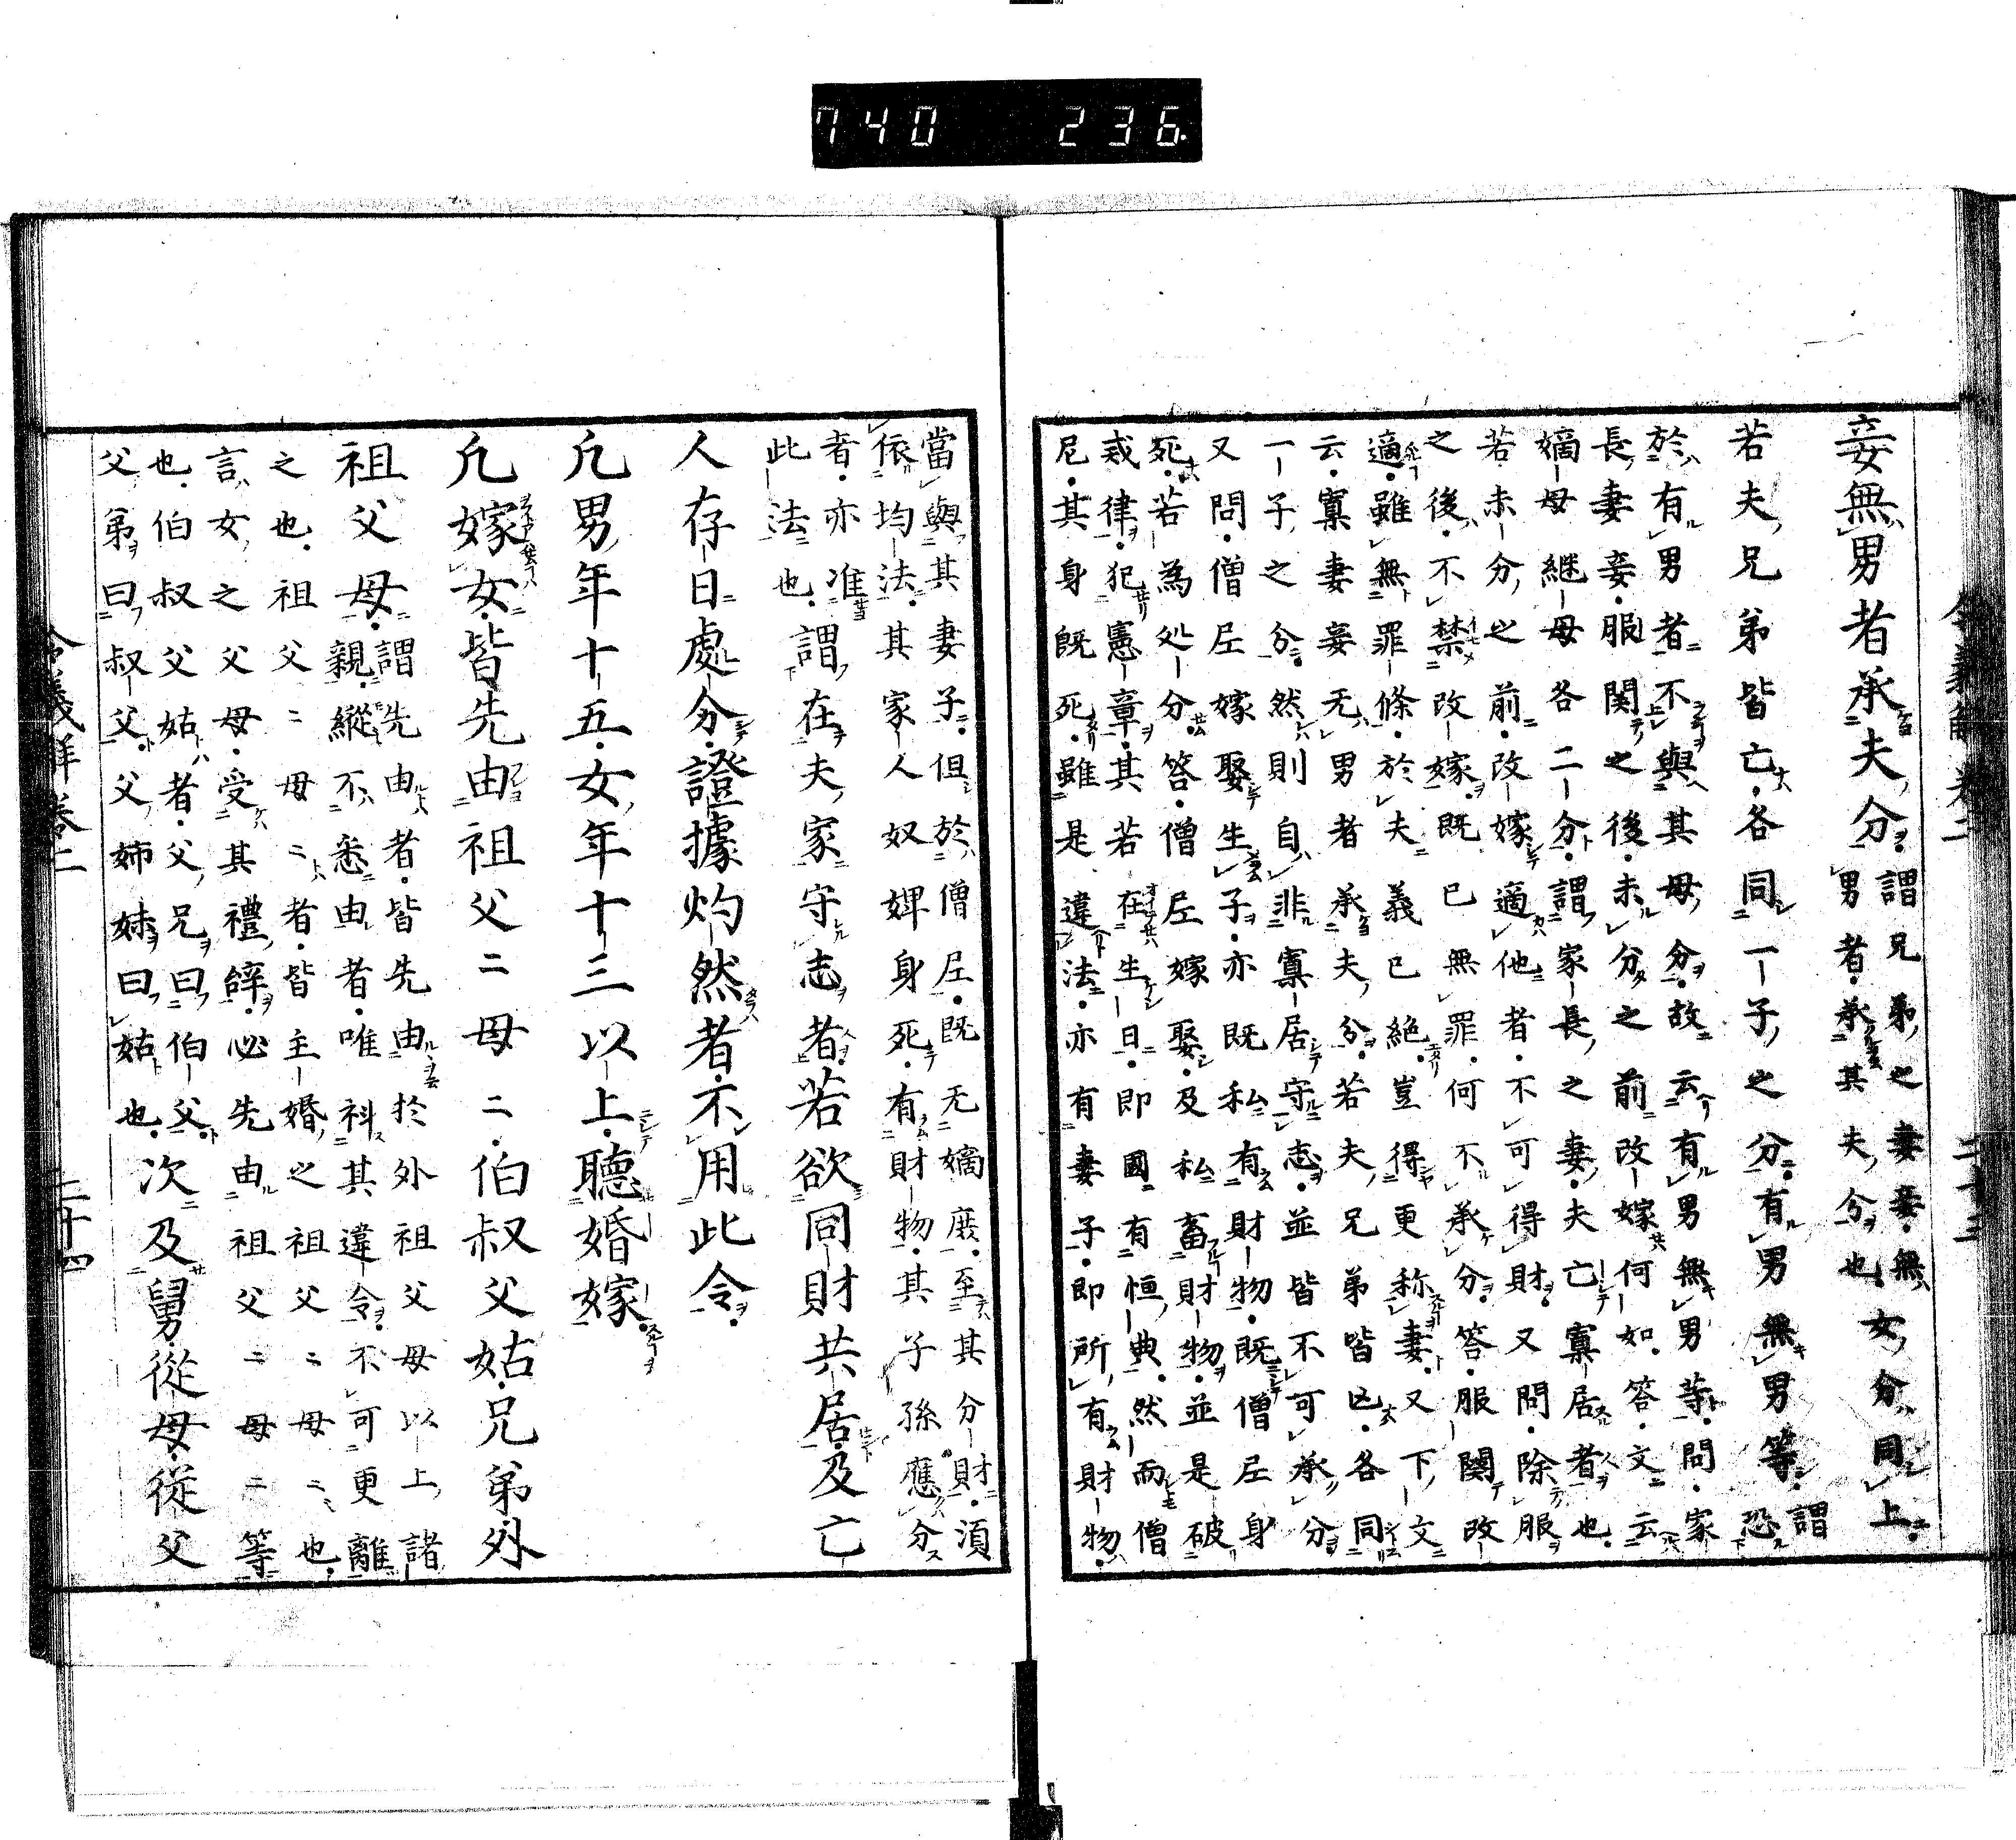 740 236
妾無男者承夫分謂兄弟之妻妾無
男者承其夫分也女分同上
若夫兄弟皆亡各同一子之分有男無男等謂
恐
於有男者不與其母分故云有男無男等問家
長妻妾服関之後未分之前改嫁何如答文云
嫡母継母各二分謂家長之妻夫亡寡居者也
若未分之前改嫁適他者不可得財又問除服
之後不禁改嫁既已無罪何不承分答服闋改
適雖無罪條於夫義已絶豈得更称妻又下文
云寡妻妾无男者承夫分若夫兄弟皆亡各同
一子之分然則自非寡居守志並皆不可承分
又問僧尼嫁娶生子亦既私有財物既僧尼身
死若為処分答僧尼嫁娶及私畜財物並是破
戒律犯憲章其若在生日即國有恒典然而僧
尼其身既死雖是違法亦有妻子即所有財物
當與其妻子但於僧尼既无嫡庶至其分財須
依均法其家人奴婢身死有財物其子孫應分
者亦准
此法也謂在夫家守志者若欲同財共居及亡
人存日處分證據灼然者不用此令
凢男年十五女年十三以上聽婚嫁
凢嫁女皆先由祖父二母二伯叔父姑兄弟外
祖父母謂先由者皆先由於外祖父母以上諸
親縱不悉由者唯科其違令不可更離
之也祖父二母二者皆主婚之祖父二母二也
言女之父母受其禮辭必先由祖父二母二等
也伯叔父姑者父兄曰伯父
父弟曰叔父父姉妹曰姑也次及舅從母從父
二十四